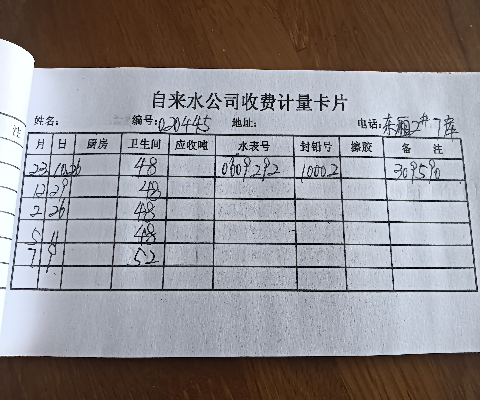 自来水公司收费计量卡片
姓名: 编号:020445 地址: 电话:东厢2#7库
月 日 厨房 卫生间 应收吨 水表号 封铅号 橡胶 备 注
23 10.26 48 0609292 10002 309590
12 29 48
2 26 48
5 11 48
7 9 52
注